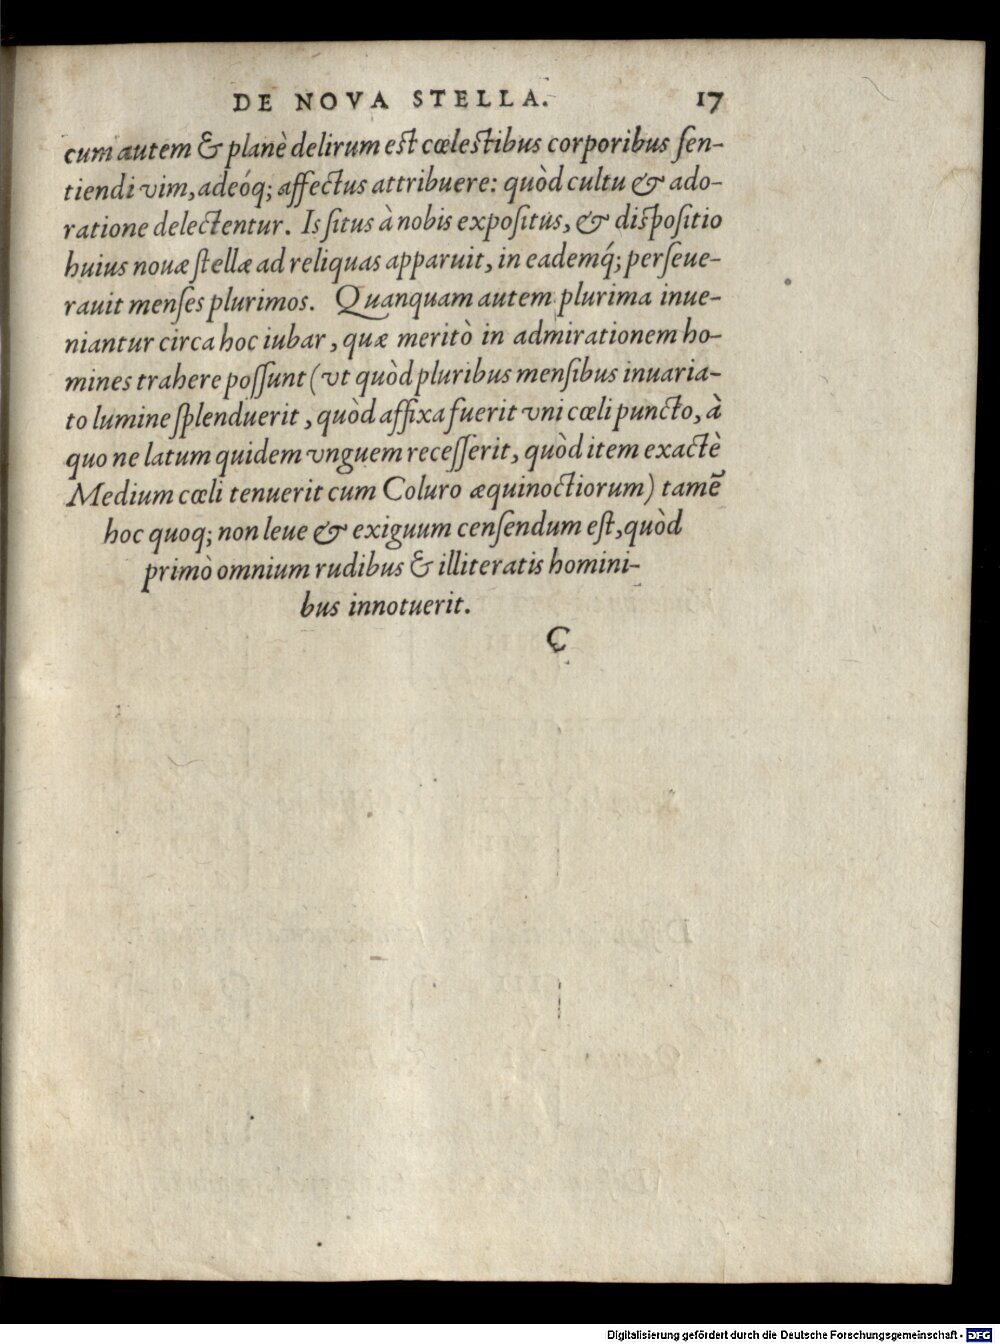 DE NOVA STELLA. 17
cum autem & planè delirum est cœlestibus corporibus ſen-
tiendi vim, adeóq; affectus attribuere: quòd cultu & ado-
ratione delectentur. Is ſitus à nobis expoſitus, & diſpoſitio
huius nouæ ſtellæ ad reliquas apparuit, in eademq́; perſeue-
rauit menſes plurimos. Quanquam autem plurima inue-
niantur circa hoc iubar, quæ meritò in admirationem ho-
mines trahere poſſunt (vt quòd pluribus menſibus inuaria-
to lumine ſplenduerit, quòd affixa fuerit vni cœli puncto, à
quo ne latum quidem vnguem receſſerit, quòd item exactè
Medium cœli tenuerit cum Coluro æquinoctiorum) tamē
hoc quoq; non leue & exiguum cenſendum eſt, quòd
primò omnium rudibus & illiteratis homini-
bus innotuerit.
C
Digitalisierung gefördert durch die Deutsche Forschungsgemeinschaft - DFG